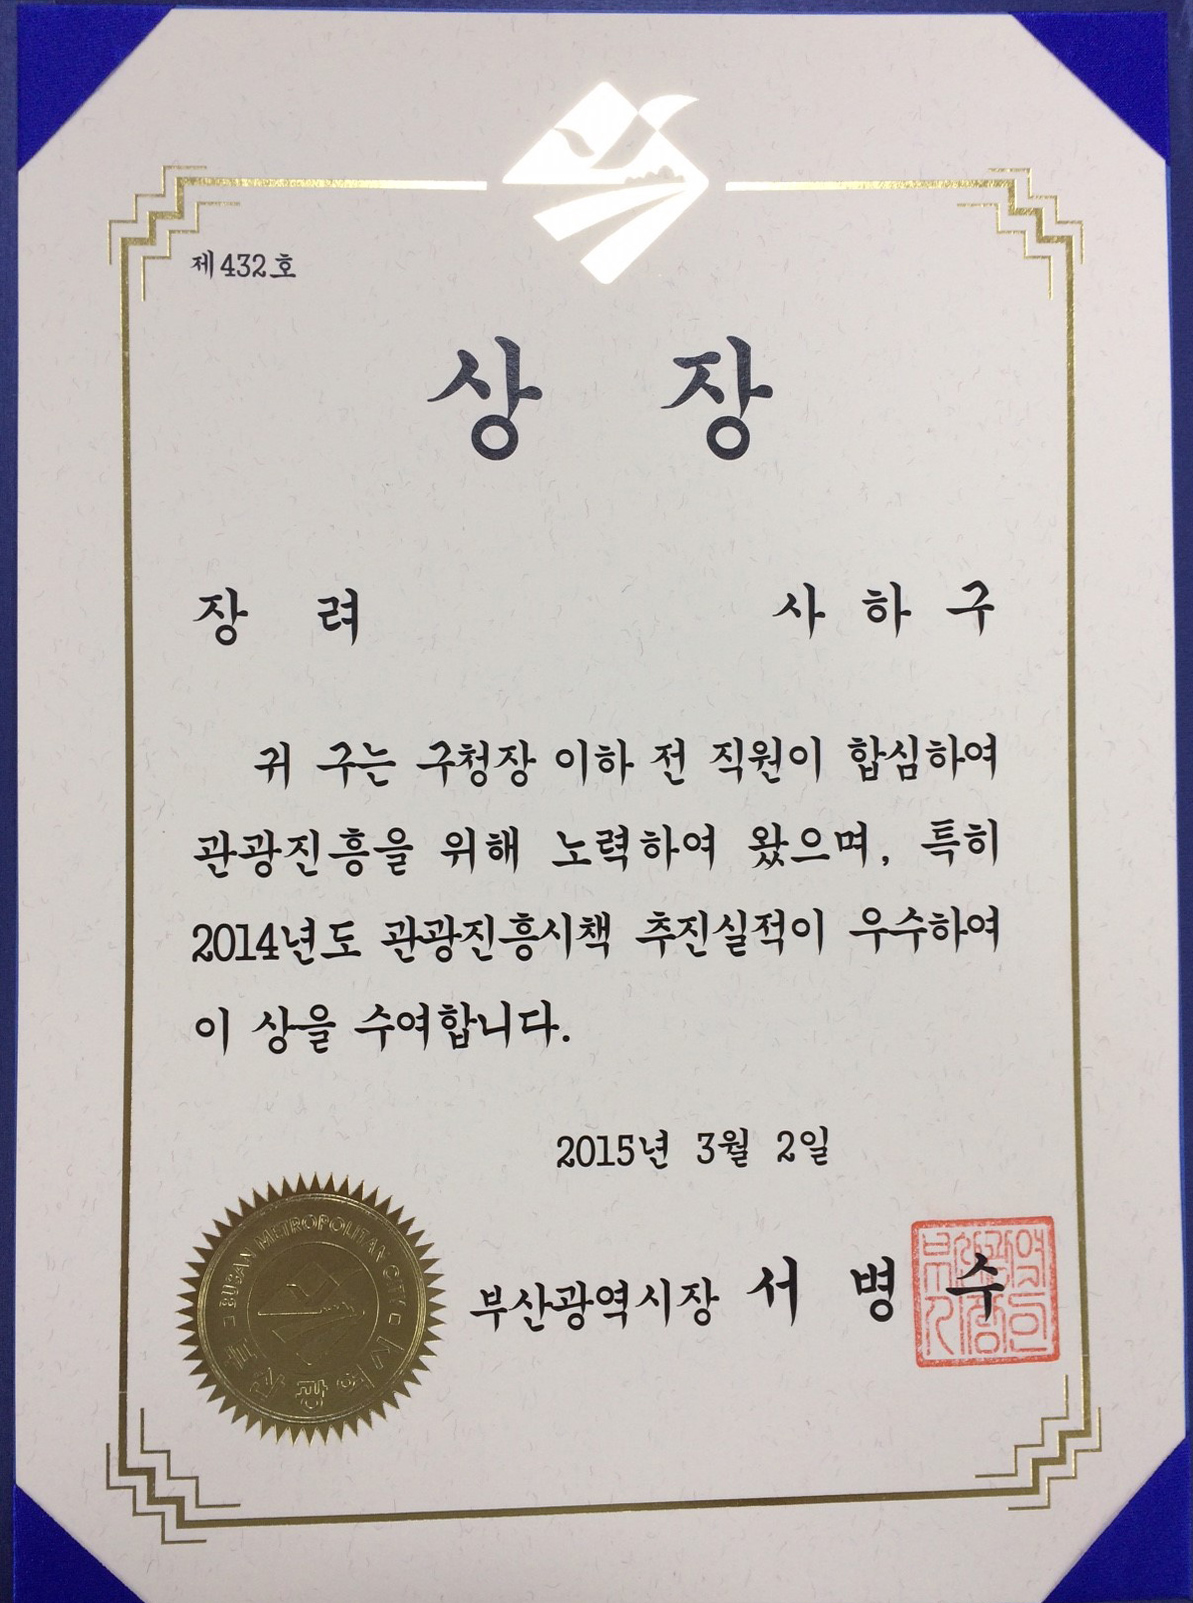 제432호
상 장
장 려 사 하 구
귀 구는 구청장 이하 전 직원이 합심하여
관광진흥을 위해 노력하여 왔으며, 특히
2014년도 관광진흥시책 추진실적이 우수하여
이 상을 수여합니다.
2015년 3월 2일
BUSAN METROPOLITAN CITY
부산광역시
부산광역시장 서 병 수